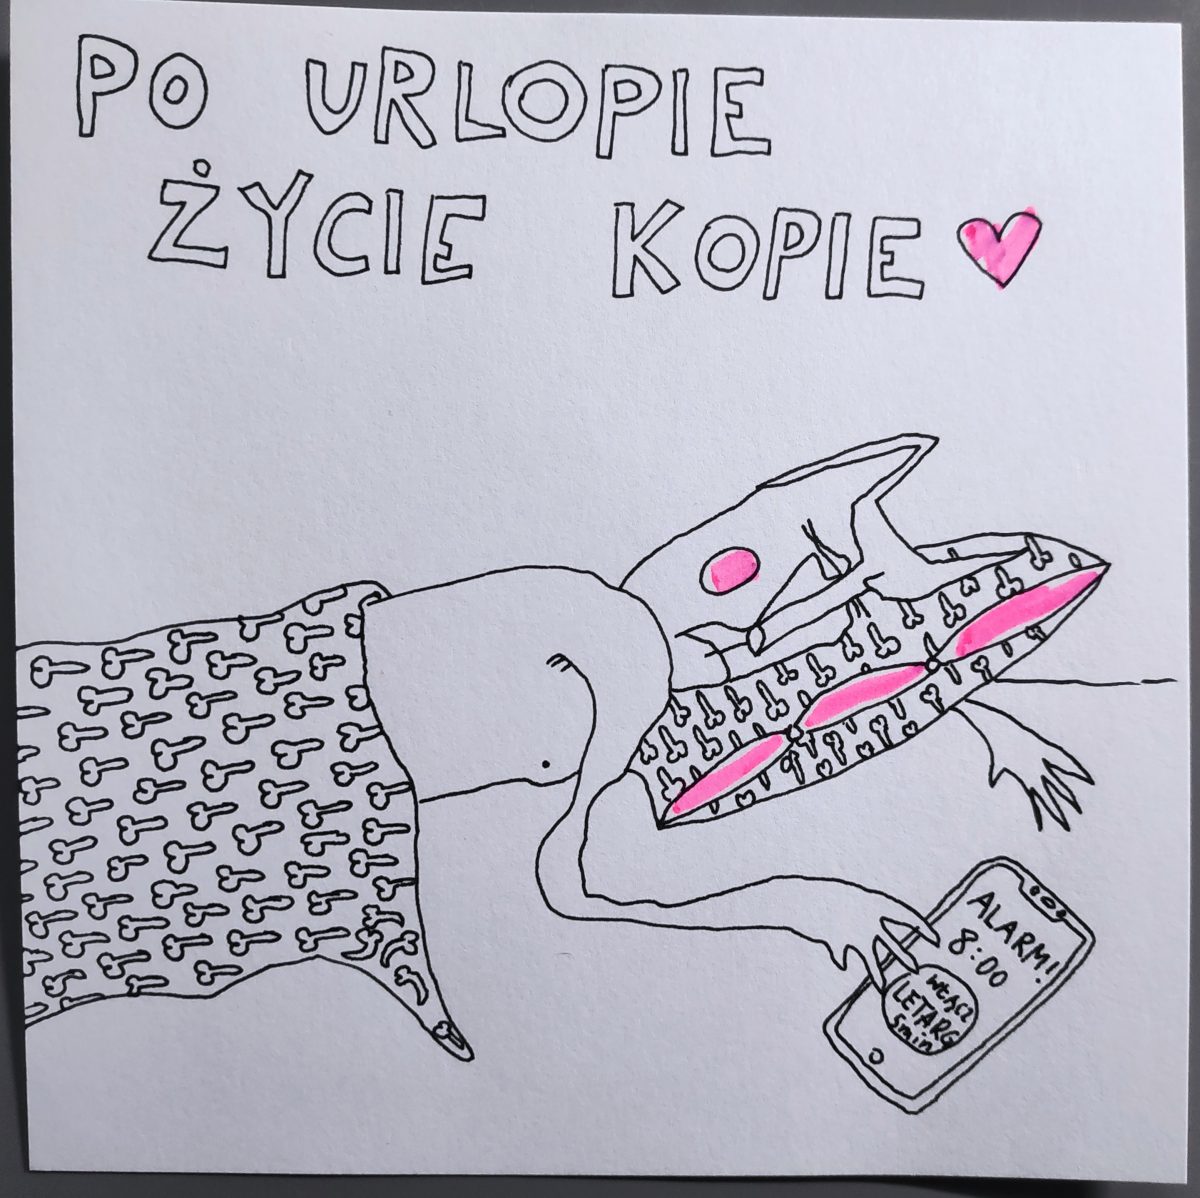 PO URLOPIE
ŻYCIE KOPIE
ALARM!
8:00
WŁĄCZ
LETARG
5min